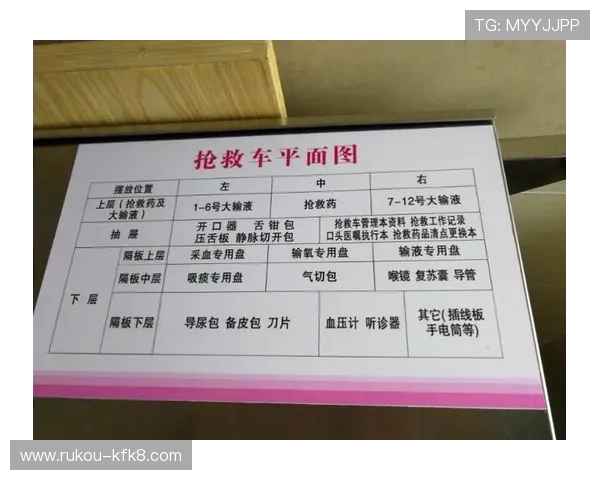 TG: MYYJJPP
抢救车平面图
摆放位置 左 中 右
上层(抢救药及大输液) 1-6号大输液 抢救药 7-12号大输液
抽 层 开口器 舌钳包 压舌板 静脉切开包 抢救车管理本资料 抢救工作记录 口头医嘱执行本 抢救药品清点更换本
下层 隔板上层 采血专用盘 输氧专用盘 输液专用盘
隔板中层 吸痰专用盘 气切包 喉镜 复苏囊 导管
隔板下层 导尿包 备皮包 刀片 血压计 听诊器 其它(插线板 手电筒等)
www.rukou-kfk8.com